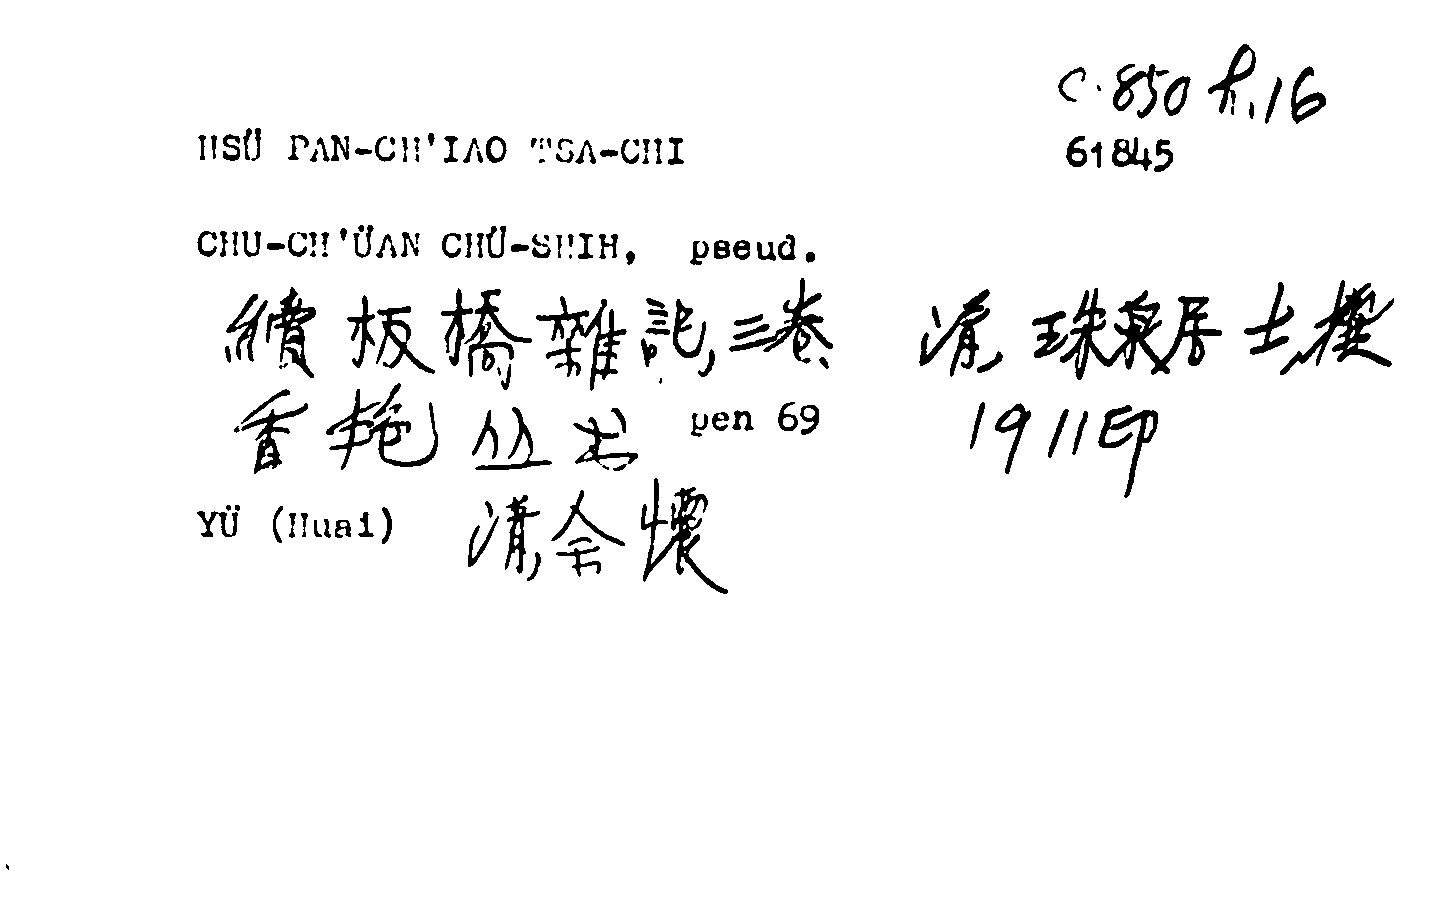 C.850 h.16
HSÜ PAN-CH'IAO TSA-CHI 61845
CHU-CH'ÜAN CHÜ-SHIH, pseud.
續板橋雜記,三卷、 清,珠泉居士,撰
香艳丛书 pen 69 1911印
YÜ (Huai) 清,余懷